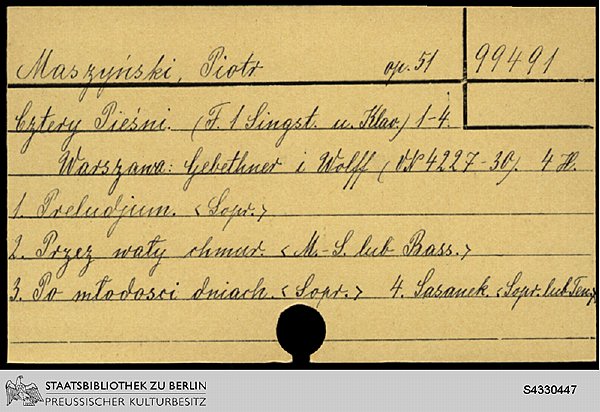 Maszyński, Piotr op. 51 99491
Cztery Pieśni. (F. 1 Singst. u. Klav.) 1-4.
Warszawa: Gebethner i Wolff (VN 4227-30). 4 H.
1. Preludjum. <Sopr.>
2. Przez wały chmur. <M.-S. lub Bass.>
3. Po młodości dniach. <Sopr.> 4. Sasanek. <Sopr. lub Ten.>
STAATSBIBLIOTHEK ZU BERLIN
PREUSSISCHER KULTURBESITZ
S4330447